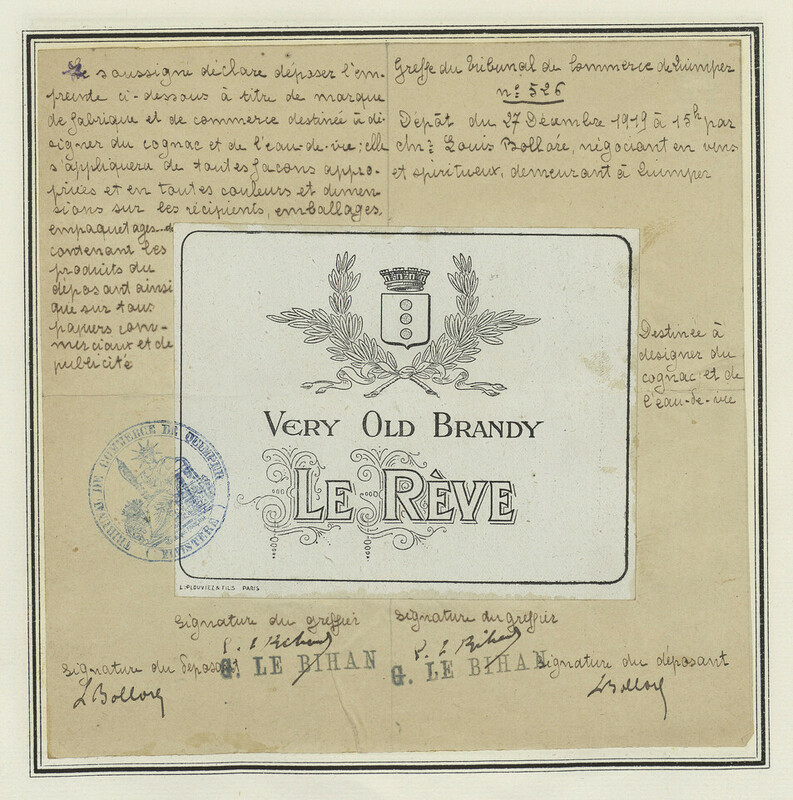 Je soussigné déclare déposer l'em-
preinte ci-dessous à titre de marque
de fabrique et de commerce destinée à dé-
signer du cognac et de l'eau-de-vie; elle
s'appliquera de toutes façons appro-
priées et en toutes couleurs et dimen-
sions sur les récipients, emballages,
empaquetages
contenant les
produits du
déposant ainsi
que sur tous
papiers com-
merciaux et de
publicité
Greffe du Tribunal de Commerce de Quimper
n° 526
Dépôt du 27 Décembre 1919 à 15h par
Louis Bolloré, négociant en vins
et spiritueux, demeurant à Quimper
VERY OLD BRANDY
LE RÊVE
Destinée à
désigner du
cognac et de
l'eau-de-vie
TRIBUNAL DE COMMERCE DE QUIMPER
(FINISTÈRE)
& FILS PARIS
Signature du greffier
Signature du greffier
G. LE BIHAN
G. LE BIHAN
Signature du déposant
Signature du déposant
L Bolloré
L Bolloré